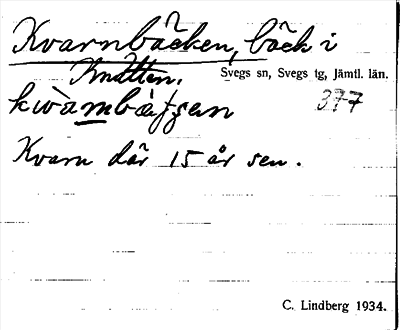 Kvarnbäcken, bäck i
Knätten. Svegs sn, Svegs tg, Jämtl. län.
377
Kvarn där 15 år sen.
C. Lindberg 1934.